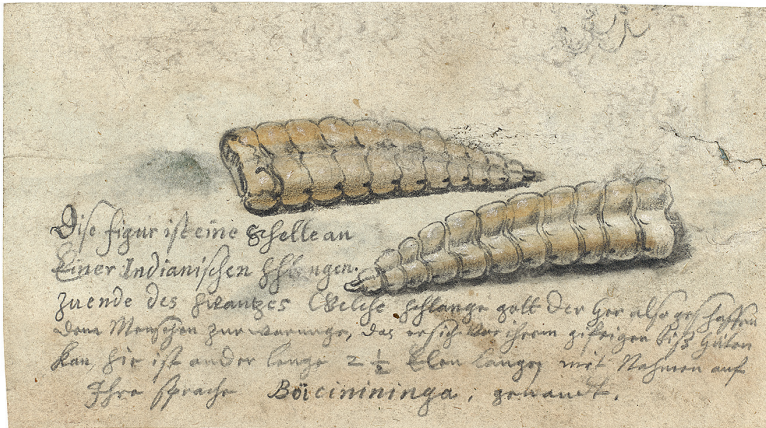 Dise figur ist eine Schelle an
Einer Indianischen Schlangen.
zu ende des swantzes Welche schlange gott der her also geschaffen
dem Menschen zur warnunge, das er sich vor ihrem gifftigen biss hüten
kan, sie ist an der lenge 2 ½ Elen lang mit Nahmen auf
Ihre sprache Boicinininga, genandt.